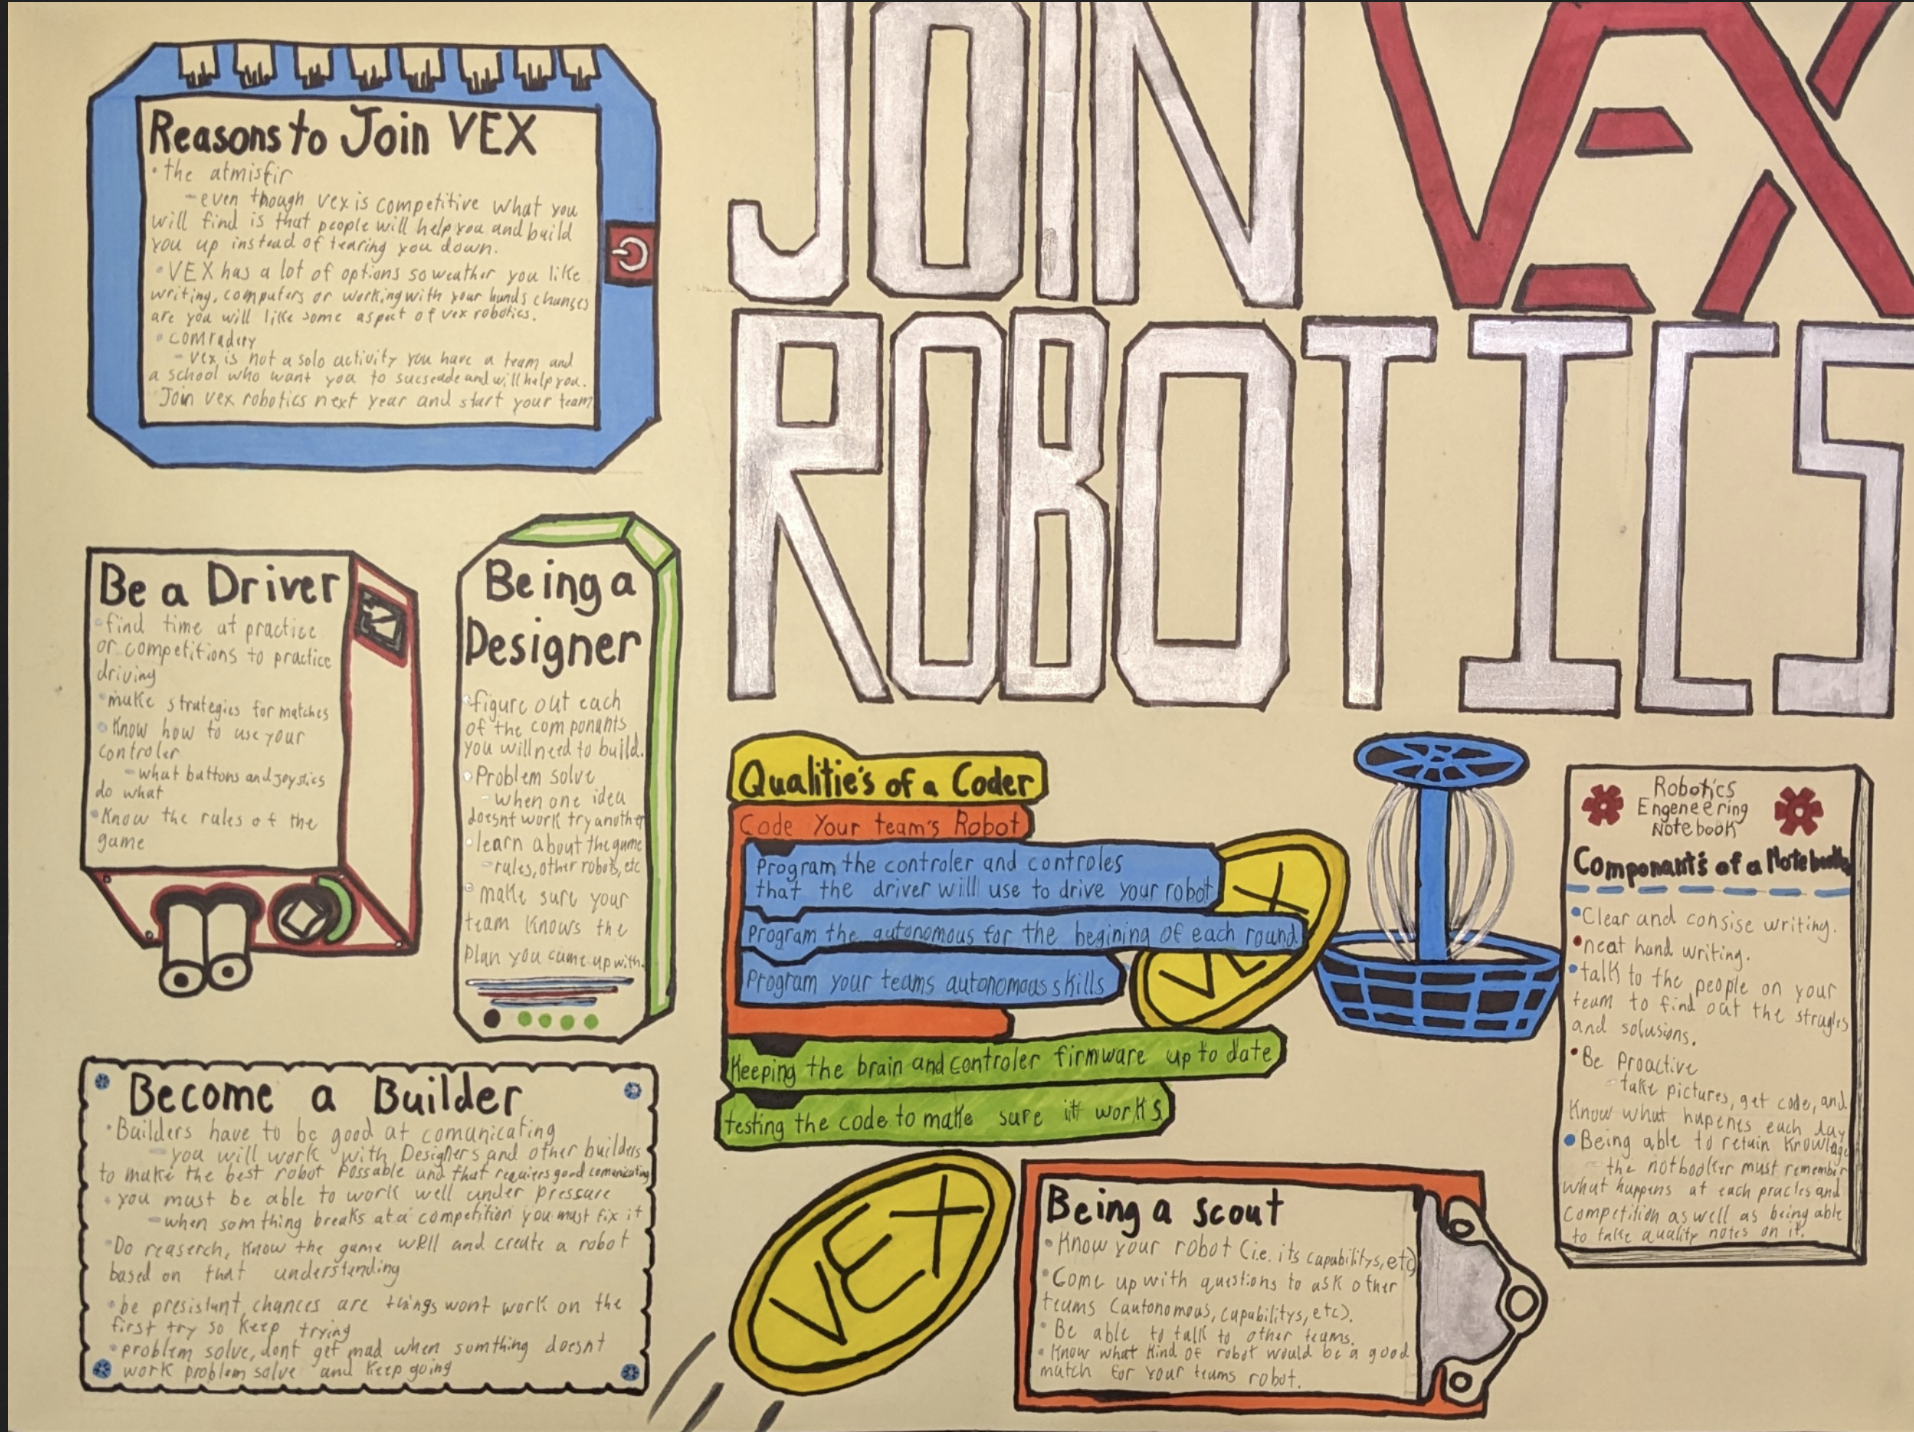 JOIN VEX
ROBOTICS
Reasons to Join VEX
• the atmisfir
- even though vex is competitive what you
will find is that people will help you and build
you up instead of tearing you down.
• VEX has a lot of options so weather you like
writing, computers or working with your hands chanses
are you will like some aspect of vex robotics.
• comradery
- vex is not a solo activity you have a team and
a school who want you to sucseade and will help you.
Join vex robotics next year and start your team
Be a Driver
• find time at practice
or competitions to practice
driving
• make strategies for matches
• Know how to use your
controler
- what buttons and joystics
do what
• Know the rules of the
game
Being a
Designer
• figure out each
of the componants
you will need to build.
• Problem solve
- when one idea
doesnt work try another
• learn about the game
- rules, other robots, etc
• make sure your
team knows the
plan you came up with.
Become a Builder
• Builders have to be good at comunicating
- you will work with Designers and other builders
to make the best robot possable and that requiers good comunicating
• you must be able to work well under pressure
- when somthing breaks at a competition you must fix it
• Do reaserch, know the game well and create a robot
based on that understanding
• be presistant, chances are things wont work on the
first try so keep trying
• problem solve, dont get mad when somthing doesnt
work problem solve and keep going
Qualitie's of a Coder
Code Your team's Robot
Program the controler and controles
that the driver will use to drive your robot
Program the autonomous for the begining of each round
Program your teams autonomous skills
Keeping the brain and controler firmware up to date
testing the code to make sure it works
VEX
VEX
Being a scout
• Know your robot (i.e. its capability s, etc)
• Come up with questions to ask other
teams (autonomous, capabilitys, etc).
• Be able to talk to other teams.
• Know what kind of robot would be a good
match for your teams robot.
Robotics
Engeneering
Notebook
Componant's of a Notebook
• Clear and consise writing.
• neat hand writing.
• talk to the people on your
team to find out the strugles
and solusions.
• Be Proactive
- take pictures, get code, and
Know what hapenes each day
• Being able to retain Knowlage
- the notbooker must remember
what happens at each practes and
Competition as well as being able
to take quality notes on it.